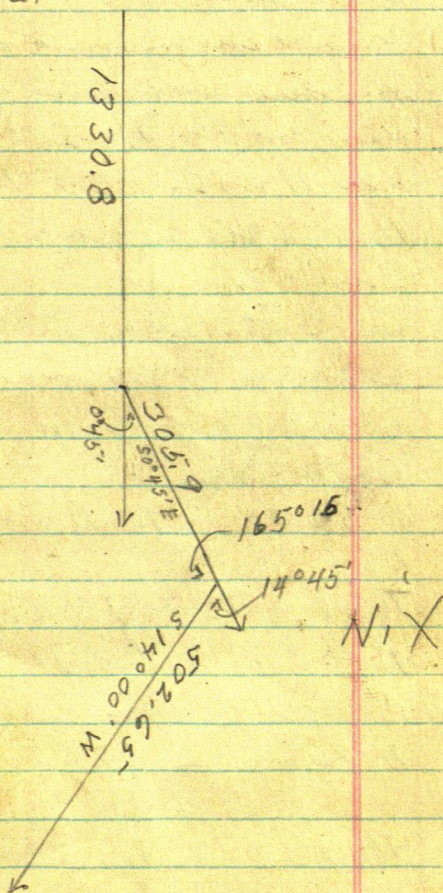 1330.8
0°45'
305.9
S 0°45'E
165°15
14°45'
N.X
502.65
S 14°00' W